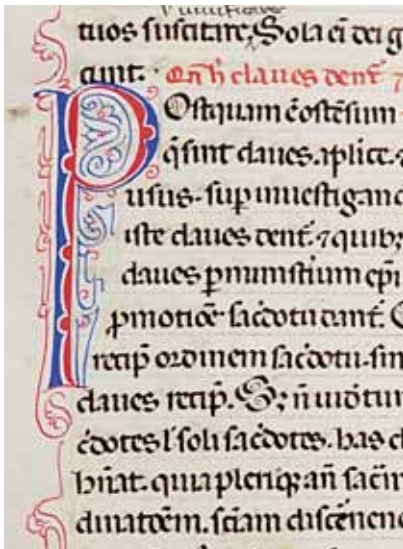 tuos suscitare. Sola eī dei g
ciunt. Qn̄ h̄ claues dent̄ ⁊
Postquam ōstēsum
q̄ sint claues. ⁊ plices.
usus. suꝑ inuestigand
iste claues dent̄. ⁊ quibꝫ
claues ꝑ ministium ep̄i
ꝓmotiōe sac̄dotū dant̄.
recip̄ ordinem sac̄dotii. sim
claues recip̄. Sꝫ n̄ uidetur
c̄dotes l̓ soli sac̄dotes. has cl
hn̄at. quia pleriqꝫ an̄ sac̄m
dinatōem. sc̄iam discēnend